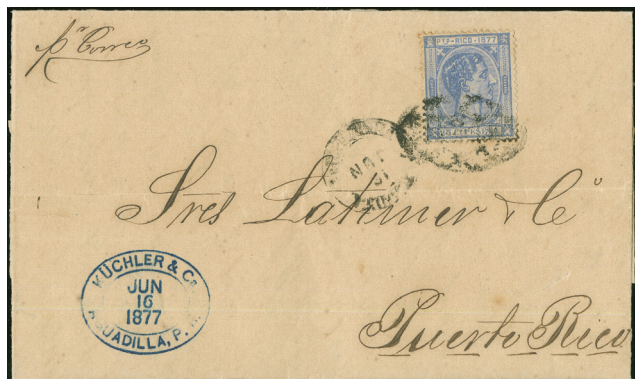 pr Correo
PTO-RICO 1877
25 CT PESETA
JUN
Sres Latimer & Co
KÜCHLER & Co
JUN
16
1877
AGUADILLA, P. R.
Puerto Rico